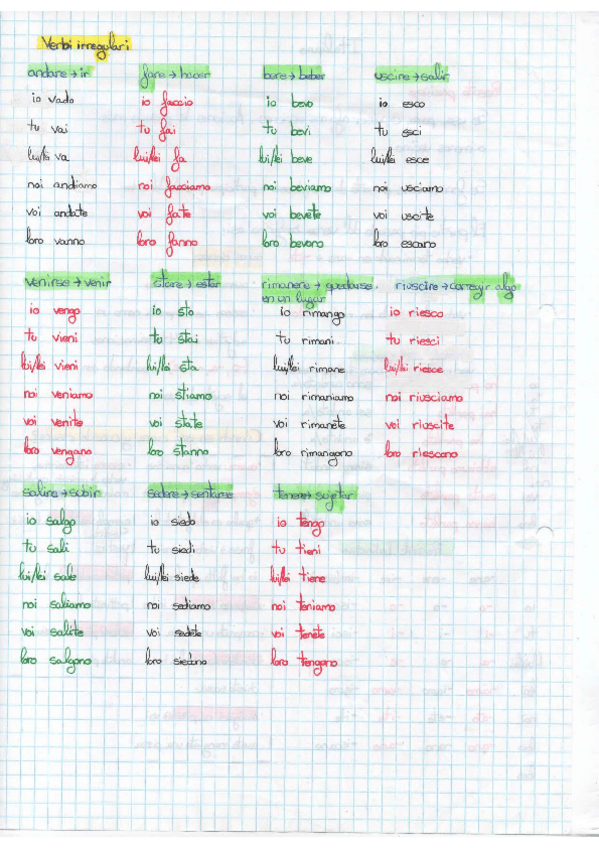 Verbi irregulari
andare → ir
io vado
tu vai
lui/lei va
noi andiamo
voi andate
loro vanno
fare → hacer
io faccio
tu fai
lui/lei fa
noi facciamo
voi fate
loro fanno
bere → beber
io bevo
tu bevi
lui/lei beve
noi beviamo
voi bevete
loro bevono
uscire → salir
io esco
tu esci
lui/lei esce
noi usciamo
voi uscite
loro escono
venirse → venir
io vengo
tu vieni
lui/lei vieni
noi veniamo
voi venite
loro vengano
stare → estar
io sto
tu stai
lui/lei sta
noi stiamo
voi state
loro stanno
rimanere → quedarse
en un lugar
io rimango
tu rimani
lui/lei rimane
noi rimaniamo
voi rimanete
loro rimangono
riuscire → conseguir algo
io riesco
tu riesci
lui/lei riesce
noi riusciamo
voi riuscite
loro riescono
salire → subir
io salgo
tu sali
lui/lei sale
noi saliamo
voi salite
loro salgono
sedere → sentarse
io siedo
tu siedi
lui/lei siede
noi sediamo
voi sedete
loro siedono
tenere → sujetar
io tengo
tu tieni
lui/lei tiene
noi teniamo
voi tenete
loro tengono